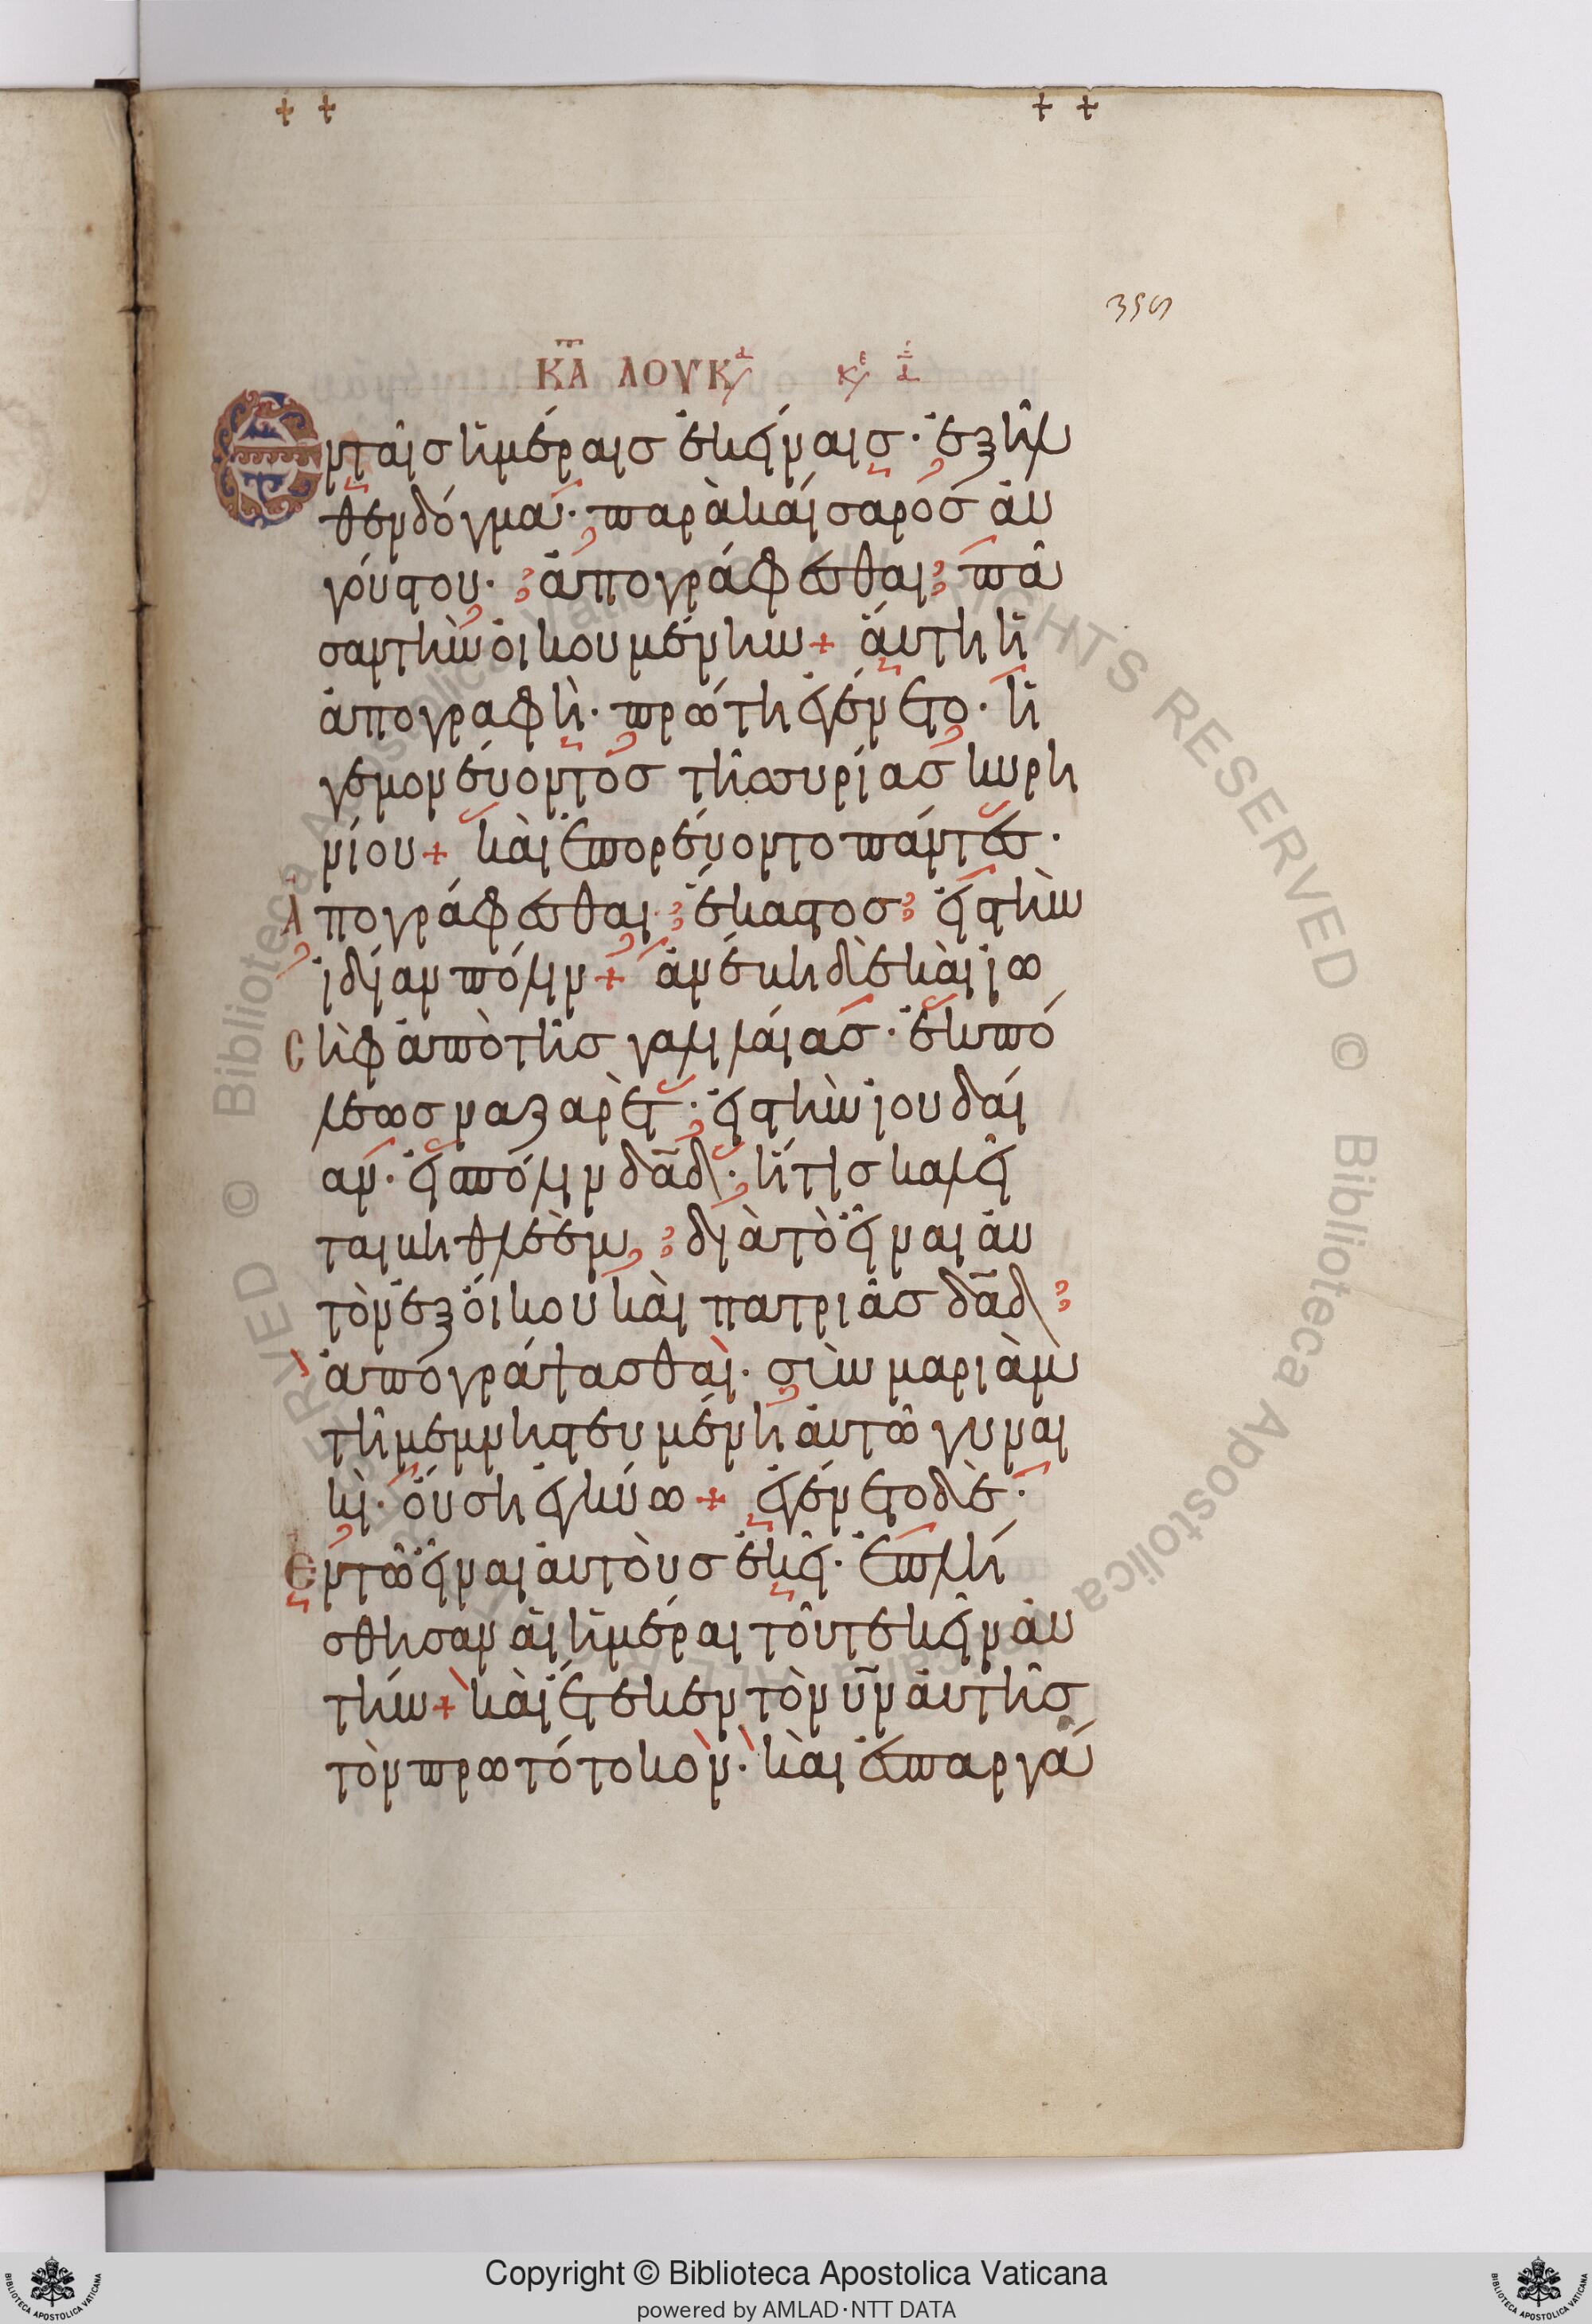 395
ΚΑΤ ΛΟΥΚ
Ἐν ταῖς ἡμέραις ἐκείναις· ἐξῆλ
θεν δόγμα· παρὰ καίσαρος αὐ
γούστου· ἀπογράφεσθαι πᾶ
σαν τὴν οἰκουμένην + αὕτη ἡ
ἀπογραφὴ· πρώτη ἐγένετο· ἡ
γεμονεύοντος τῆς συρίας κυρη
νίου + καὶ ἐπορεύοντο πάντες·
Ἀπογράφεσθαι· ἕκαστος εἰς τὴν
ἰδίαν πόλιν + ἀνέβη δὲ καὶ ἰω
Σὴφ ἀπὸ τῆς γαλιλαίας· ἐκ πό
λεως ναζαρὲτ· εἰς τὴν ἰουδαί
αν· εἰς πόλιν δᾶδ· ἥτις καλεῖ
ται βηθλεὲμ· διὰ τὸ εἶναι αὐ
τὸν ἐξ οἴκου καὶ πατριᾶς δᾶδ
ἀπογράψασθαι· σὺν μαριὰμ
τῇ μεμνηστευμένη αὐτῶ γυναι
κὶ· οὔση ἐγκύω + ἐγένετο δὲ·
Ἐν τῶ εἶναι αὐτοὺς ἐκεῖ· ἐπλή
σθησαν αἱ ἡμέραι τοῦ τεκεῖν αὐ
τήν + καὶ ἔτεκεν τὸν ῡν αὐτῆς
τὸν πρωτότοκον· καὶ ἐσπαργά
Copyright © Biblioteca Apostolica Vaticana
powered by AMLAD·NTT DATA